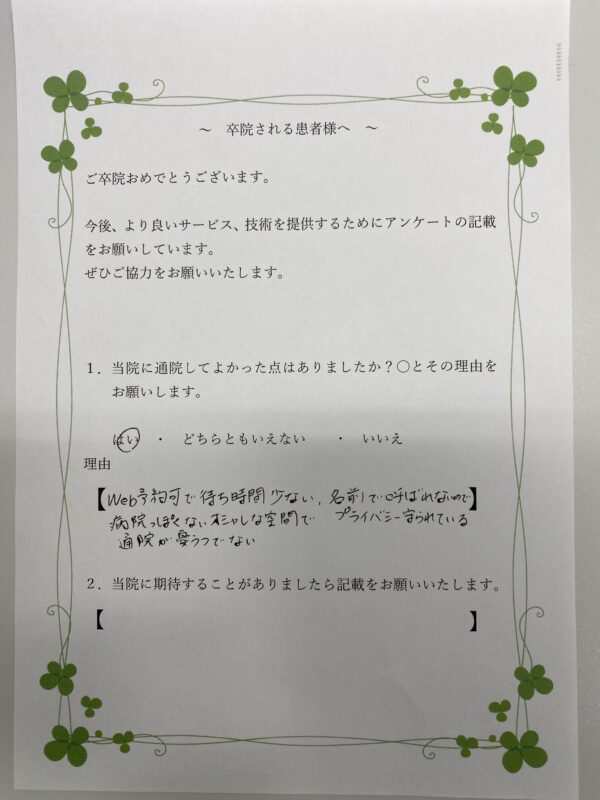 ～ 卒院される患者様へ ～
ご卒院おめでとうございます。
今後、より良いサービス、技術を提供するためにアンケートの記載
をお願いしています。
ぜひご協力をお願いいたします。
1．当院に通院してよかった点はありましたか？〇とその理由を
お願いします。
はい ・ どちらともいえない ・ いいえ
理由
【Web予約可で待ち時間少ない、名前で呼ばれないので】
病院っぽくないオシャレな空間で プライバシー守られている
通院が憂うつでない
2．当院に期待することがありましたら記載をお願いいたします。
【 】